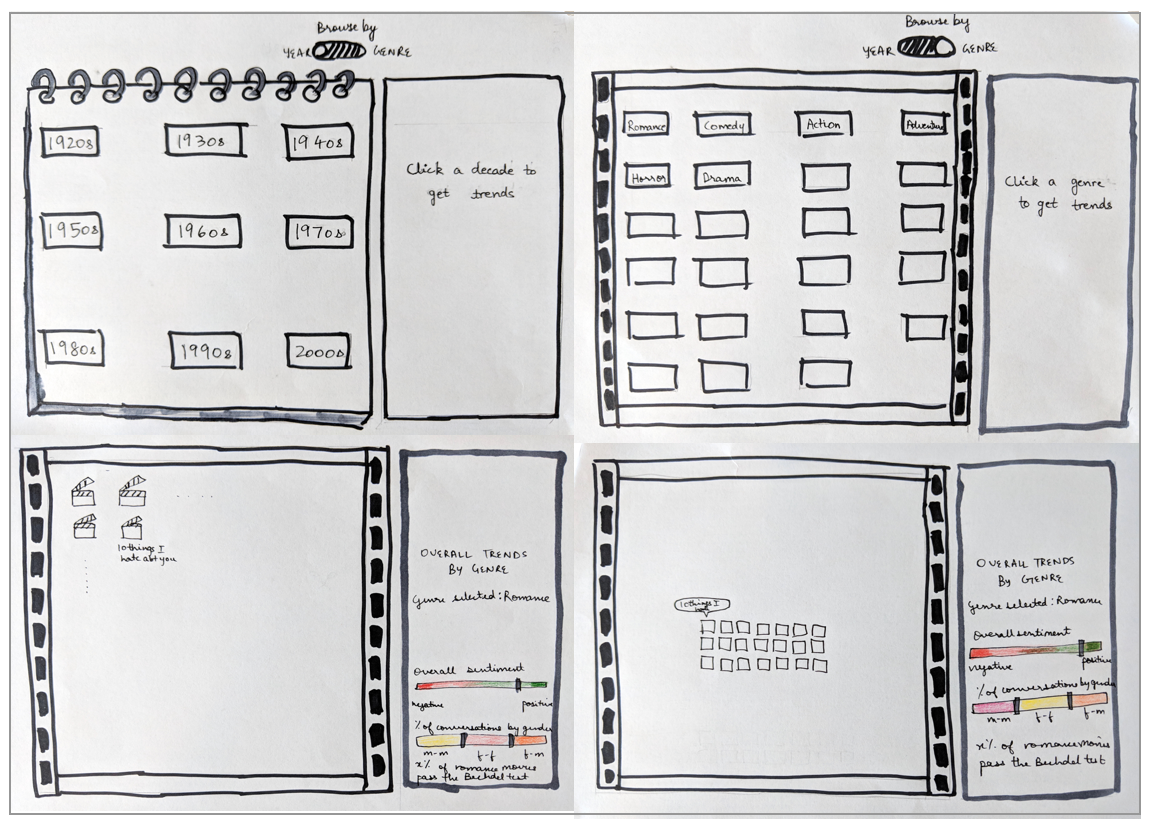 Browse by
YEAR GENRE
1920s 1930s 1940s
1950s 1960s 1970s
1980s 1990s 2000s
Click a decade to
get trends
Browse by
YEAR GENRE
Romance Comedy Action Adventure
Horror Drama
Click a genre
to get trends
10 things I
hate abt you
OVERALL TRENDS
BY GENRE
Genre selected: Romance
Overall sentiment
negative positive
% of conversations by gender
m-m f-f f-m
x% of romance movies
pass the Bechdel test
10 things I
OVERALL TRENDS
BY GENRE
Genre selected: Romance
Overall sentiment
negative positive
% of conversation by gender
m-m f-f f-m
x% of romance movies
pass the Bechdel test